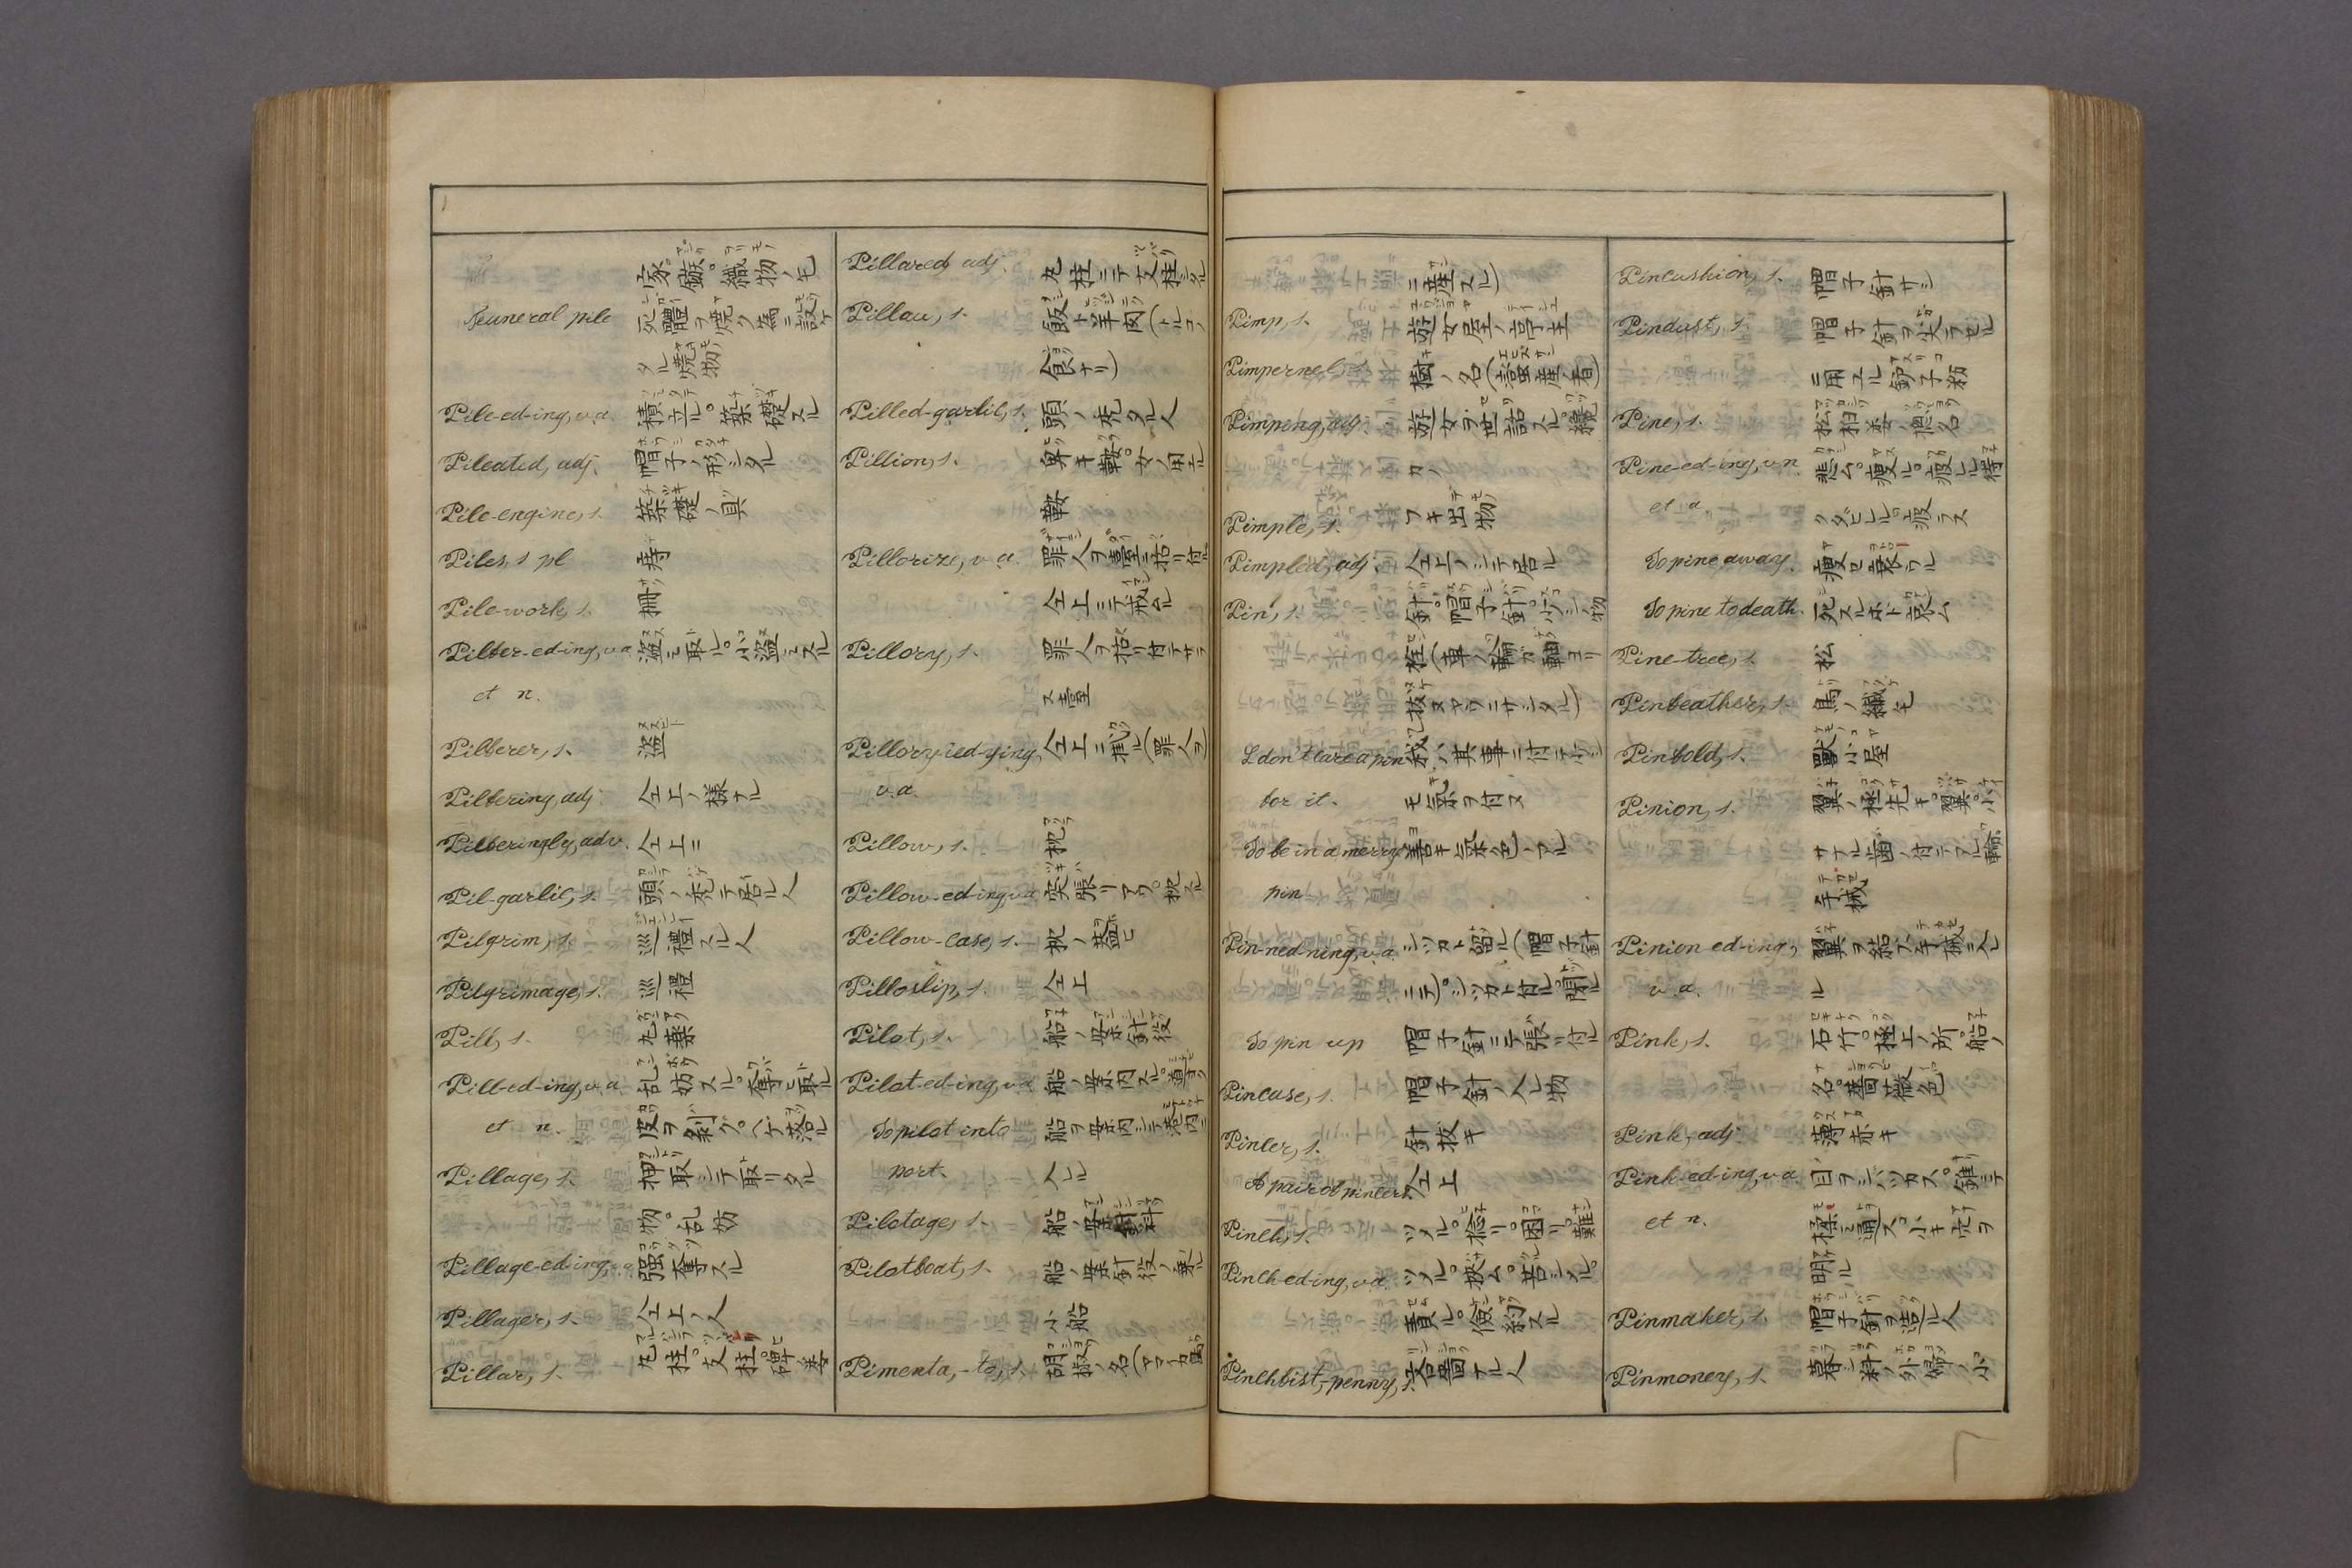 家。鏃。織物ノ毛
Feuneral pile 死體ヲ燒ク為ニ設ケ
タル焼物
Pile-ed-ing, v.a. 積立ル。築礎スル
Pileated, adj. 帽子ノ形シタル
Pile-engine, s. 築礎ノ具
Piles, s. pl 痔
Pile-work, s. 柵
Pilfer-ed-ing, v.a 盗ミ取ル。小盗ミスル
et n.
Pilferer, s. 盗
Pilfering, adj. 仝上ノ様ナル
Pilferingly, adv. 仝上ニ
Pil-garlic, s. 頭ノ禿テ居ル人
Pilgrim, s. 巡禮スル人
Pilgrimage, s. 巡禮
Pill, s. 丸薬
Pill-ed-ing, v.a 乱妨スル。奪ヒ取ル
et n. 皮ヲ剝グ。ヘゲ落ル
Pillage, s. 押取シテ取リタル
物。乱妨
Pillage-ed-ing, v.a 强奪スル
Pillager, s. 仝上ノ人
Pillar, s. 丸柱。支柱。碑
Pillared, adj. 丸柱ニテ支柱シタル
Pillau, s. 飯ト羊肉(トルコノ
食ナリ)
Pilled-garlic, s. 頭ノ禿タル人
Pillion, s. 卑キ鞍。女ノ用ユル
鞍
Pillorize, v.a. 罪人ヲ臺ニ括リ付ル
仝上ニテ戒ムル
Pillory, s. 罪人ヲ括リ付テサラ
ス臺
Pillory-ied-ying, 仝上ニ戒ル(罪人ヲ)
v.a.
Pillow, s. 枕
Pillow-ed-ing, v.a 突張リアウ。枕スル
Pillow-case, s. 枕ノ蓋ヒ
Pilloslip, s. 仝上
Pilot, s. 船ノ按針役
Pilot-ed-ing, v.a 船ノ案内スル。導ク
To pilot into 船ヲ案内シテ港内ニ
port. 入ルル
Pilotage, s. 船ノ按針料
Pilotboat, s. 船ノ按針役ノ乗ル
小船
Pimenta, -to, s. 胡椒ノ名
ニ産スル)
Pimp, s. 遊女屋ノ亭主
Pimpernel, s. 樹ノ名
Pimping, adj. 遊女ヲ世話スル。
カノ
Pimple, s. フキ出物
Pimpled, adj. 仝上ノシテ居ル
Pin, s. 針。帽子針。小シノ物
栓(車ノ輪ガ軸ヨリ
抜ヌヤウニサシタル)
I don't care a pin 我ハ其事ニ付テ少シ
for it. モ氣ヲ付ヌ
To be in a merry 善キ氣色ノアル
pin
Pin-ned-ning, v.a. シツカト留ル(帽子針
ニテ)。シツカト付ル。閉ル
To pin up 帽子針ニテ張リ付ル
Pincase, s. 帽子針ノ入レ物
Pincer, s. 針抜キ
A pair of pincers 仝上
Pinch, s. ツメル。捻リ。困リ。難
Pinch-ed-ing, v.a. ツメル。挾ム。苦シメル。
責ル。儉約スル
Pinchfist, -penny, s. 吝嗇ナル人
Pincushion, s. 帽子針サシ
Pindust, s. 帽子針ヲ尖ラセル
ニ用ユル鈩子粉
Pine, s. 松柏ノ惣名
Pine-ed-ing, v.n. 悲ム。瘦ル。疲ル。待
et a. クタビレル。疲ラス
To pine away. 瘦セ衰ウル
To pine to death. 死スルホド哀ム
Pine-tree, s. 松
Pinfeather, s. 鳥ノ纎毛
Pinfold, s. 獸小屋
Pinion, s. 翼ノ極先キ。翼。小
サナル齒ノ付テアル輪
手械
Pinion-ed-ing, 翼ヲ結ブ。手械ニ入
v.a. ル
Pink, s. 石竹。極上ノ所。船ノ
名。薔薇色
Pink, adj. 薄赤キ
Pink-ed-ing, v.a 目ヲシバツカス。錐ニテ
et n. 揉ミ通ス。小キ穴ヲ
明ル
Pinmaker, s. 帽子針ヲ造ル人
Pinmoney, s.